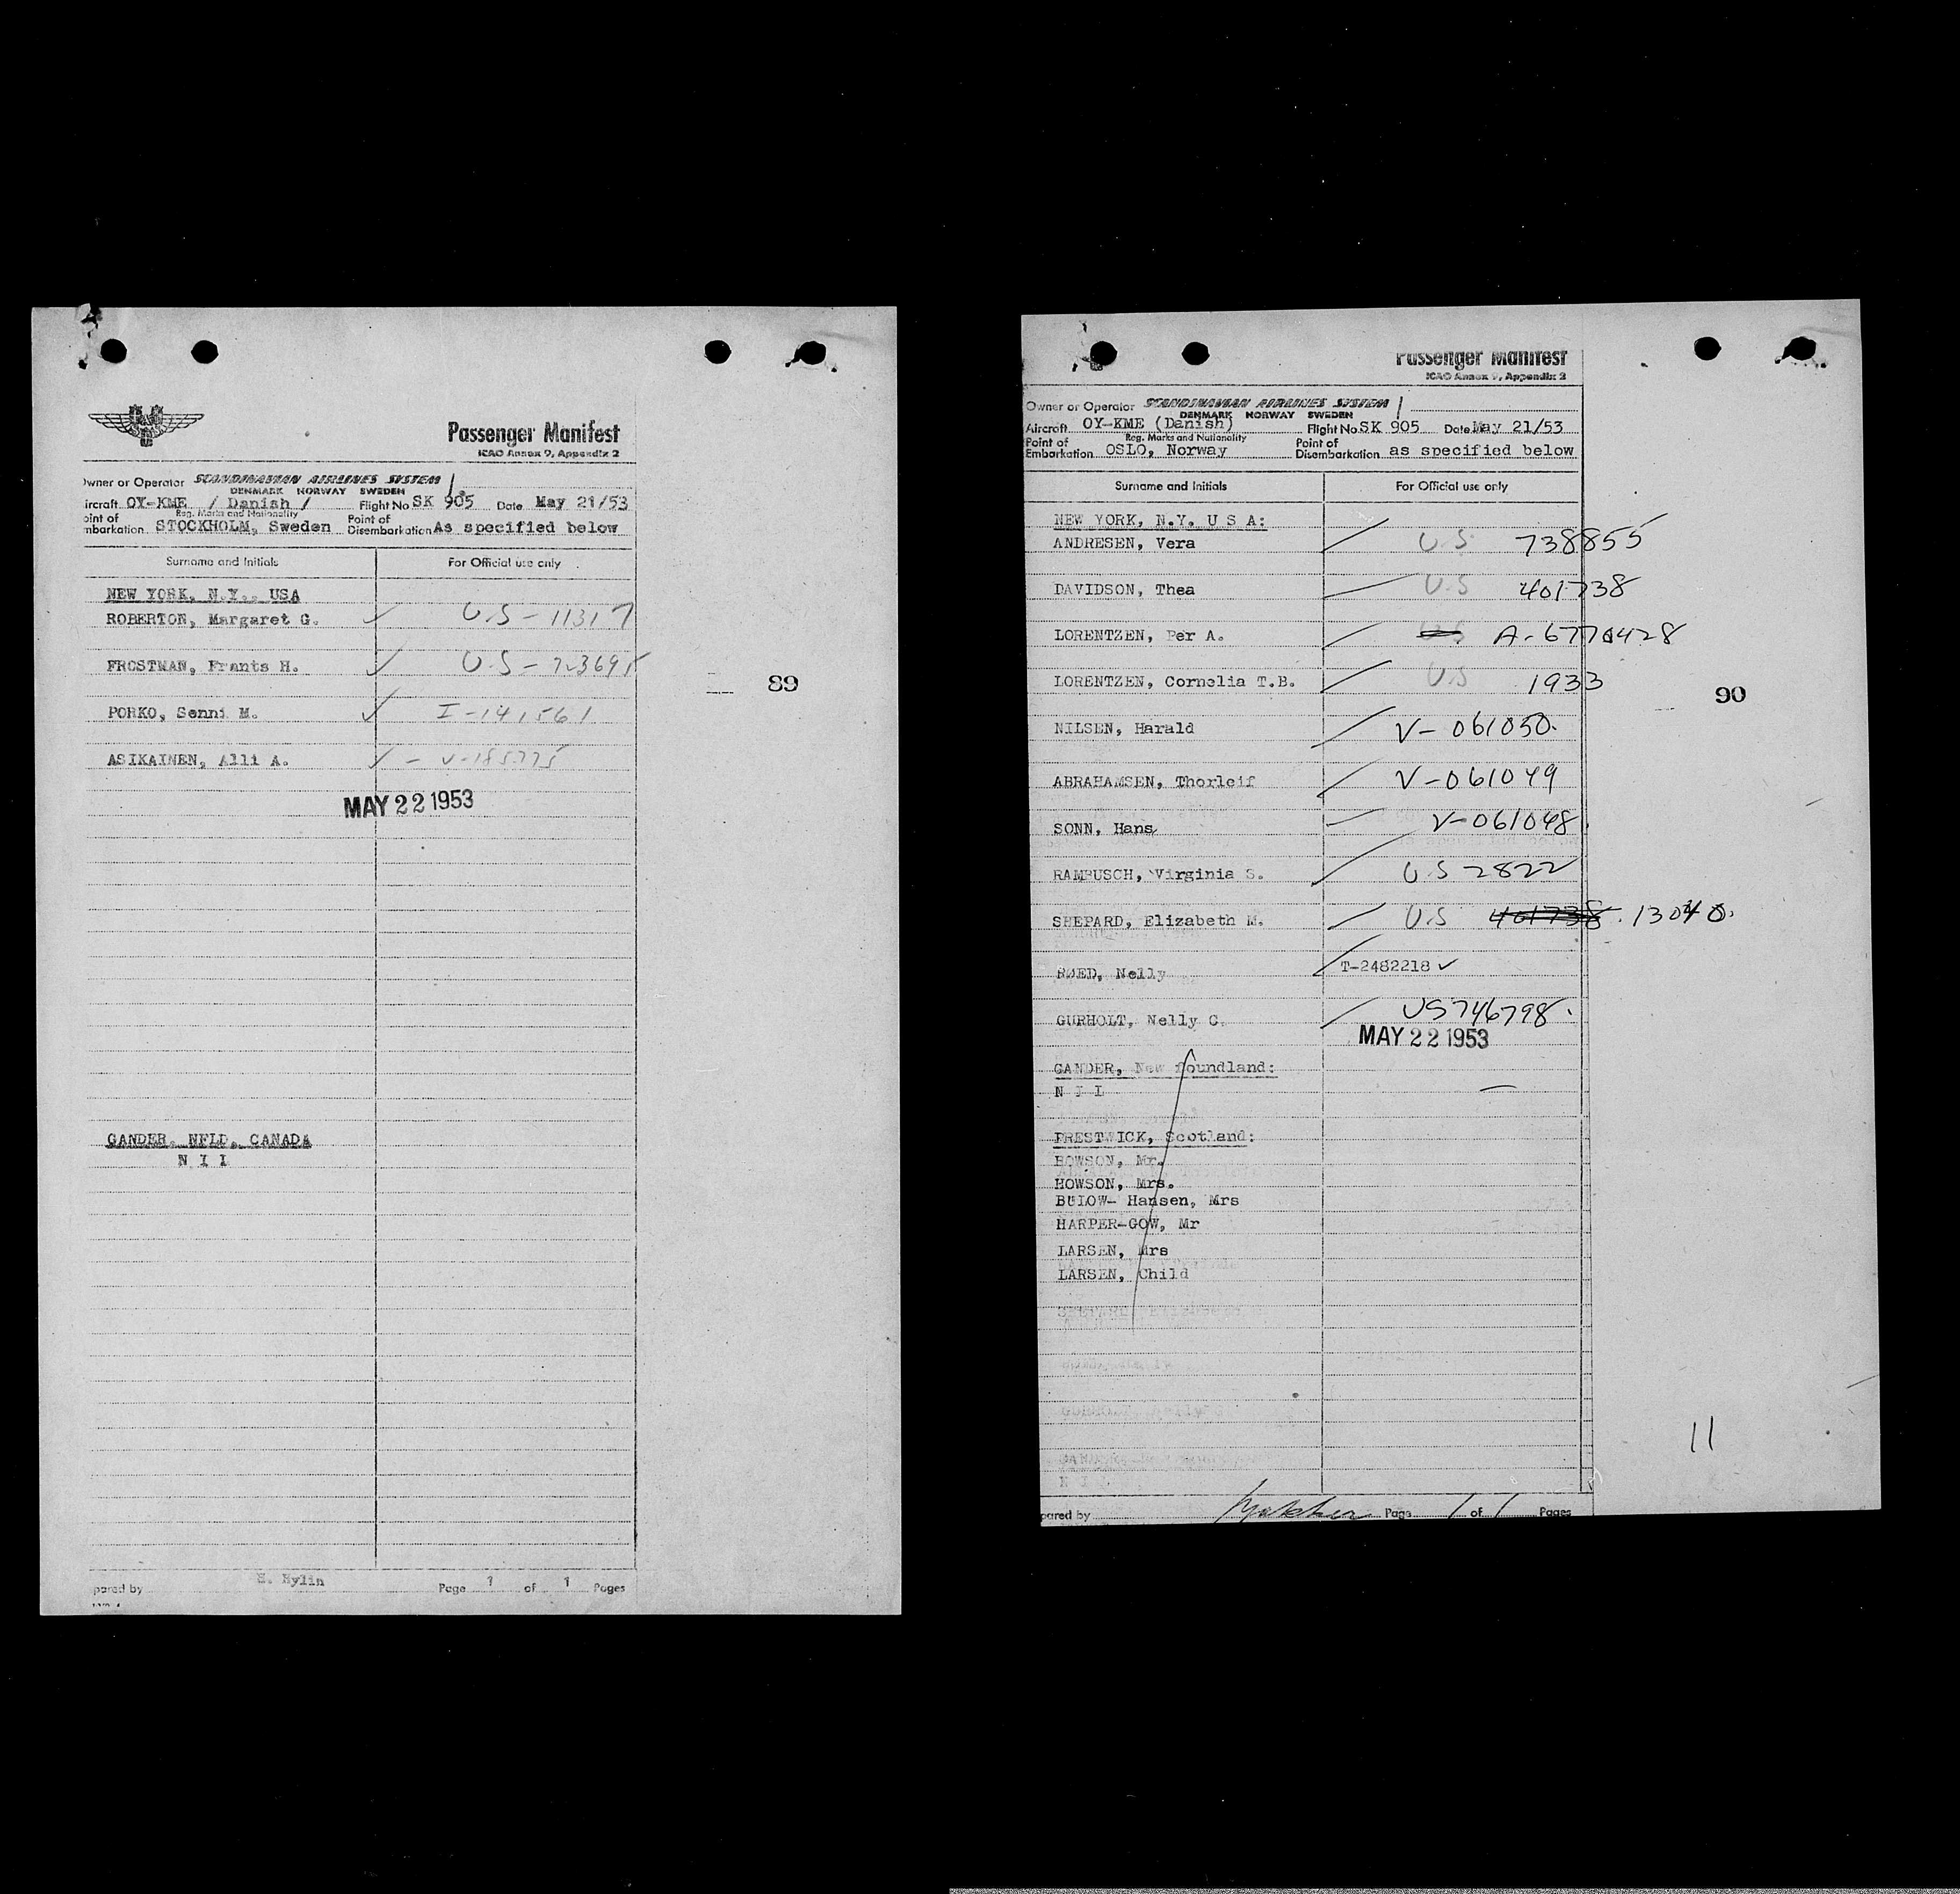 Passenger Manifest
ICAO Annex 9, Appendix 2
Owner or Operator SCANDINAVIAN AIRLINES SYSTEM
DENMARK NORWAY SWEDEN
ircraft OY-KME / Danish / Flight No SK 905 Date May 21/53
Reg. Marks and Nationality
oint of Point of
mbarkation STOCKHOLM, Sweden Disembarkation As specified below
Surname and Initials For Official use only
NEW YORK, N.Y., USA
ROBERTON, Margaret G. U.S - 11317
FROSTMAN, Frants H. U.S - 723695
PORKO, Senni M. I-141561
ASIKAINEN, Alli A. - V-185775
MAY 22 1953
89
GANDER, NFLD, CANADA
N I I
pared by S. Hylin Page 1 of 1 Pages
Passenger Manifest
ICAO Annex 9, Appendix 2
Owner or Operator SCANDINAVIAN AIRLINES SYSTEM
DENMARK NORWAY SWEDEN
Aircraft OY-KME (Danish) Flight No SK 905 Date May 21/53
Reg. Marks and Nationality
Point of Point of
Embarkation OSLO, Norway Disembarkation as specified below
Surname and Initials For Official use only
NEW YORK, N.Y. U S A:
ANDRESEN, Vera U.S 738855
DAVIDSON, Thea U.S 401738
LORENTZEN, Per A. U.S A-6770428
LORENTZEN, Cornelia T.B. U.S 1933
90
NILSEN, Harald V-061050.
ABRAHAMSEN, Thorleif V-061049
SONN, Hans V-061048
RAMBUSCH, Virginia S. U.S 2822
SHEPARD, Elizabeth M. U.S 401738. 13040.
RØED, Nelly T-2482218
GURHOLT, Nelly C. US746798.
MAY 22 1953
GANDER, New foundland:
N I L
PRESTWICK, Scotland:
HOWSON, Mr.
HOWSON, Mrs.
BULOW- Hansen, Mrs
HARPER-GOW, Mr
LARSEN, Mrs
LARSEN, Child
11
pared by Page 1 of 1 Pages